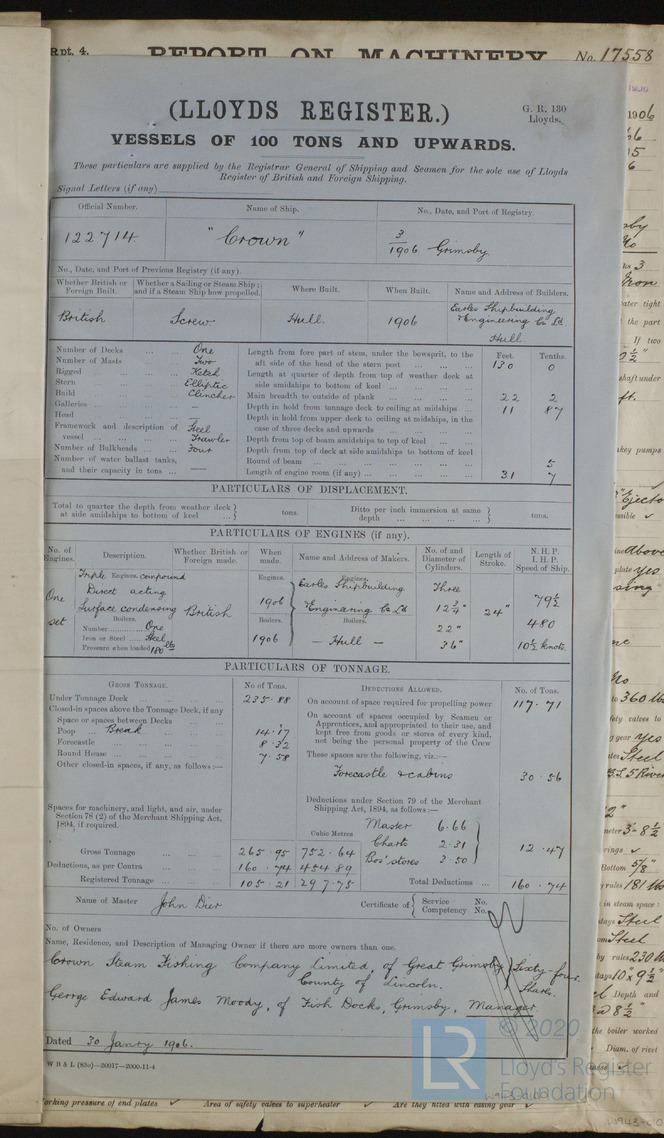 Rpt. 4. REPORT ON MACHINERY No. 17558
(LLOYDS REGISTER.)
G. R. 130
Lloyds.
VESSELS OF 100 TONS AND UPWARDS.
These particulars are supplied by the Registrar General of Shipping and Seamen for the sole use of Lloyds
Register of British and Foreign Shipping.
Signal Letters (if any)
Official Number. Name of Ship. No., Date, and Port of Registry.
122714. "Crown" 3/1906 Grimsby
No., Date, and Port of Previous Registry (if any).
Whether British or Foreign Built. Whether a Sailing or Steam Ship; and if a Steam Ship how propelled. Where Built. When Built. Name and Address of Builders.
British Screw Hull. 1906 Earles Shipbuilding & Engineering Co Ld. Hull
Number of Decks ... One
Number of Masts ... Two
Rigged ... Ketch
Stern ... Elliptic
Build ... Clincher
Galleries ... —
Head ... —
Framework and description of vessel ... Steel Trawler
Number of Bulkheads ... Four
Number of water ballast tanks, and their capacity in tons ... —
Feet. Tenths.
Length from fore part of stem, under the bowsprit, to the aft side of the head of the stern post ... 130 0
Length at quarter of depth from top of weather deck at side amidships to bottom of keel ...
Main breadth to outside of plank ... 22 2
Depth in hold from tonnage deck to ceiling at midships ... 11 87
Depth in hold from upper deck to ceiling at midships, in the case of three decks and upwards ...
Depth from top of beam amidships to top of keel ...
Depth from top of deck at side amidships to bottom of keel
Round of beam ... 5
Length of engine room (if any) ... 31 7
PARTICULARS OF DISPLACEMENT.
Total to quarter the depth from weather deck at side amidships to bottom of keel ... } tons.
Ditto per inch immersion at same depth ... } tons.
PARTICULARS OF ENGINES (if any).
No. of Engines. Description. Whether British or Foreign made. When made. Name and Address of Makers. No. of and Diameter of Cylinders. Length of Stroke. N.H.P. I.H.P. Speed of Ship.
One set
Triple Engines. compound
Direct acting
Surface condensing
Boilers.
Number One
Iron or Steel Steel
Pressure when loaded 180 lbs
British
Engines. 1906
Boilers. 1906
Engines.
Earles Shipbuilding
& Engineering Co Ld
Boilers.
— Hull —
Three
12 3/4"
22"
36"
24"
79 1/2
480
10 1/2 knots.
PARTICULARS OF TONNAGE.
GROSS TONNAGE. No of Tons.
Under Tonnage Deck ... 235.88
Closed-in spaces above the Tonnage Deck, if any
Space or spaces between Decks
Poop Break ... 14.17
Forecastle ... 8.32
Round House ... 7.58
Other closed-in spaces, if any, as follows:—
Spaces for machinery, and light, and air, under Section 78 (2) of the Merchant Shipping Act, 1894, if required.
Cubic Metres
Gross Tonnage ... 265.95 752.64
Deductions, as per Contra ... 160.74 454.89
Registered Tonnage ... 105.21 297.75
DEDUCTIONS ALLOWED. No. of Tons.
On account of space required for propelling power 117.71
On account of spaces occupied by Seamen or Apprentices, and appropriated to their use, and kept free from goods or stores of every kind, not being the personal property of the Crew
These spaces are the following, viz.:—
Forecastle & cabins 30.56
Deductions under Section 79 of the Merchant Shipping Act, 1894, as follows:—
Master 6.66
Charts 2.31
Bos' stores 3.50
12.47
Total Deductions ... 160.74
Name of Master John Dier
Certificate of { Service No.
Competency No.
No. of Owners
Name, Residence, and Description of Managing Owner if there are more owners than one.
Crown Steam Fishing Company Limited of Great Grimsby } Sixty-four
County of Lincoln. Shares.
George Edward James Moody, of Fish Docks, Grimsby, Manager.
Dated 30 Janry 1906.
W B & L (83o)—20917—2000-11-4
© 2020
LR
Lloyd's Register
Foundation
working pressure of end plates Area of safety valves to superheater Are they fitted with easing gear